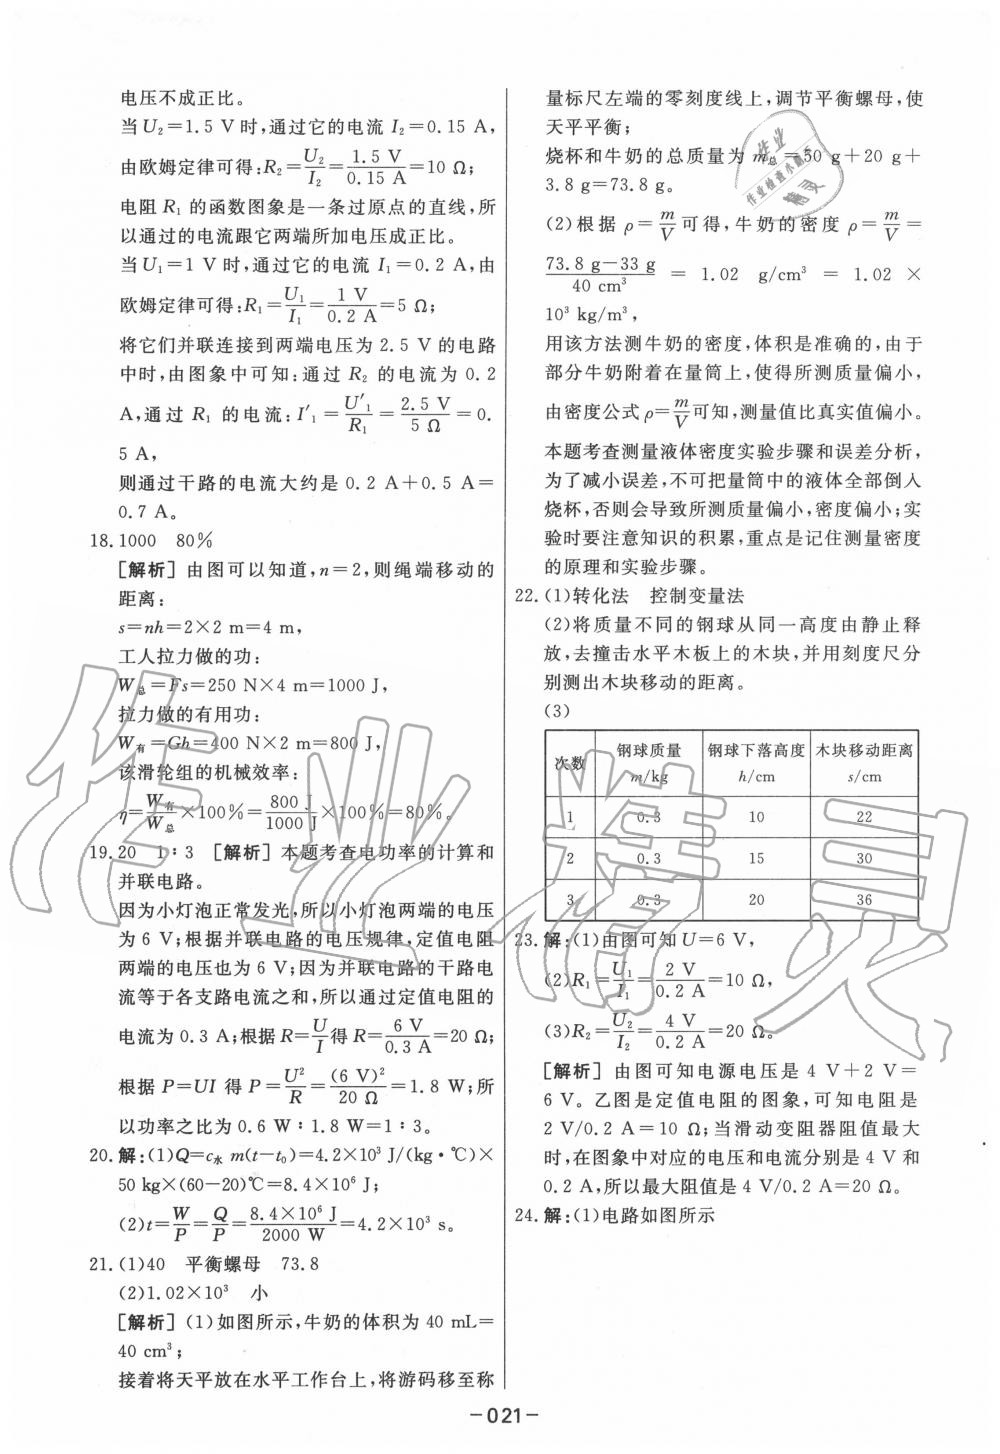 电压不成正比。
当U₂=1.5 V时,通过它的电流 I₂=0.15 A,
由欧姆定律可得:R₂=U₂/I₂=1.5 V/0.15 A=10 Ω;
电阻 R₁ 的函数图象是一条过原点的直线,所
以通过的电流跟它两端所加电压成正比。
当U₁=1 V时,通过它的电流 I₁=0.2 A,由
欧姆定律可得:R₁=U₁/I₁=1 V/0.2 A=5 Ω;
将它们并联连接到两端电压为 2.5 V 的电路
中时,由图象中可知:通过 R₂ 的电流为 0.2
A,通过 R₁ 的电流:I′₁=U′₁/R₁=2.5 V/5 Ω=0.
5 A,
则通过干路的电流大约是 0.2 A+0.5 A=
0.7 A。
18.1000 80%
[解析] 由图可以知道,n=2,则绳端移动的
距离:
s=nh=2×2 m=4 m,
工人拉力做的功:
W总=Fs=250 N×4 m=1000 J,
拉力做的有用功:
W有=Gh=400 N×2 m=800 J,
该滑轮组的机械效率:
η=W有/W总×100%=800 J/1000 J×100%=80%。
19.20 1∶3 [解析] 本题考查电功率的计算和
并联电路。
因为小灯泡正常发光,所以小灯泡两端的电压
为 6 V;根据并联电路的电压规律,定值电阻
两端的电压也为 6 V;因为并联电路的干路电
流等于各支路电流之和,所以通过定值电阻的
电流为 0.3 A;根据 R=U/I得 R=6 V/0.3 A=20 Ω;
根据 P=UI 得 P=U²/R=(6 V)²/20 Ω=1.8 W;所
以功率之比为 0.6 W∶1.8 W=1∶3。
20.解:(1)Q=c水 m(t-t₀)=4.2×10³ J/(kg·℃)×
50 kg×(60-20)℃=8.4×10⁶ J;
(2)t=W/P=Q/P=8.4×10⁶ J/2000 W=4.2×10³ s。
21.(1)40 平衡螺母 73.8
(2)1.02×10³ 小
[解析] (1)如图所示,牛奶的体积为 40 mL=
40 cm³;
接着将天平放在水平工作台上,将游码移至称
量标尺左端的零刻度线上,调节平衡螺母,使
天平平衡;
烧杯和牛奶的总质量为 m总=50 g+20 g+
3.8 g=73.8 g。
(2)根据 ρ=m/V可得,牛奶的密度 ρ=m/V=
73.8 g-33 g/40 cm³ = 1.02 g/cm³ = 1.02 ×
10³ kg/m³,
用该方法测牛奶的密度,体积是准确的,由于
部分牛奶附着在量筒上,使得所测质量偏小,
由密度公式 ρ=m/V可知,测量值比真实值偏小。
本题考查测量液体密度实验步骤和误差分析,
为了减小误差,不可把量筒中的液体全部倒入
烧杯,否则会导致所测质量偏小,密度偏小;实
验时要注意知识的积累,重点是记住测量密度
的原理和实验步骤。
22.(1)转化法 控制变量法
(2)将质量不同的钢球从同一高度由静止释
放,去撞击水平木板上的木块,并用刻度尺分
别测出木块移动的距离。
(3)
次数 钢球质量 m/kg 钢球下落高度 h/cm 木块移动距离 s/cm
1 0.3 10 22
2 0.3 15 30
3 0.3 20 36
23.解:(1)由图可知U=6 V,
(2)R₁=U₁/I₁=2 V/0.2 A=10 Ω,
(3)R₂=U₂/I₂=4 V/0.2 A=20 Ω。
[解析] 由图可知电源电压是 4 V+2 V=
6 V。乙图是定值电阻的图象,可知电阻是
2 V/0.2 A=10 Ω;当滑动变阻器阻值最大
时,在图象中对应的电压和电流分别是 4 V和
0.2 A,所以最大阻值是 4 V/0.2 A=20 Ω。
24.解:(1)电路如图所示
-021-
作业精灵
作业
作业检查小助手
精灵